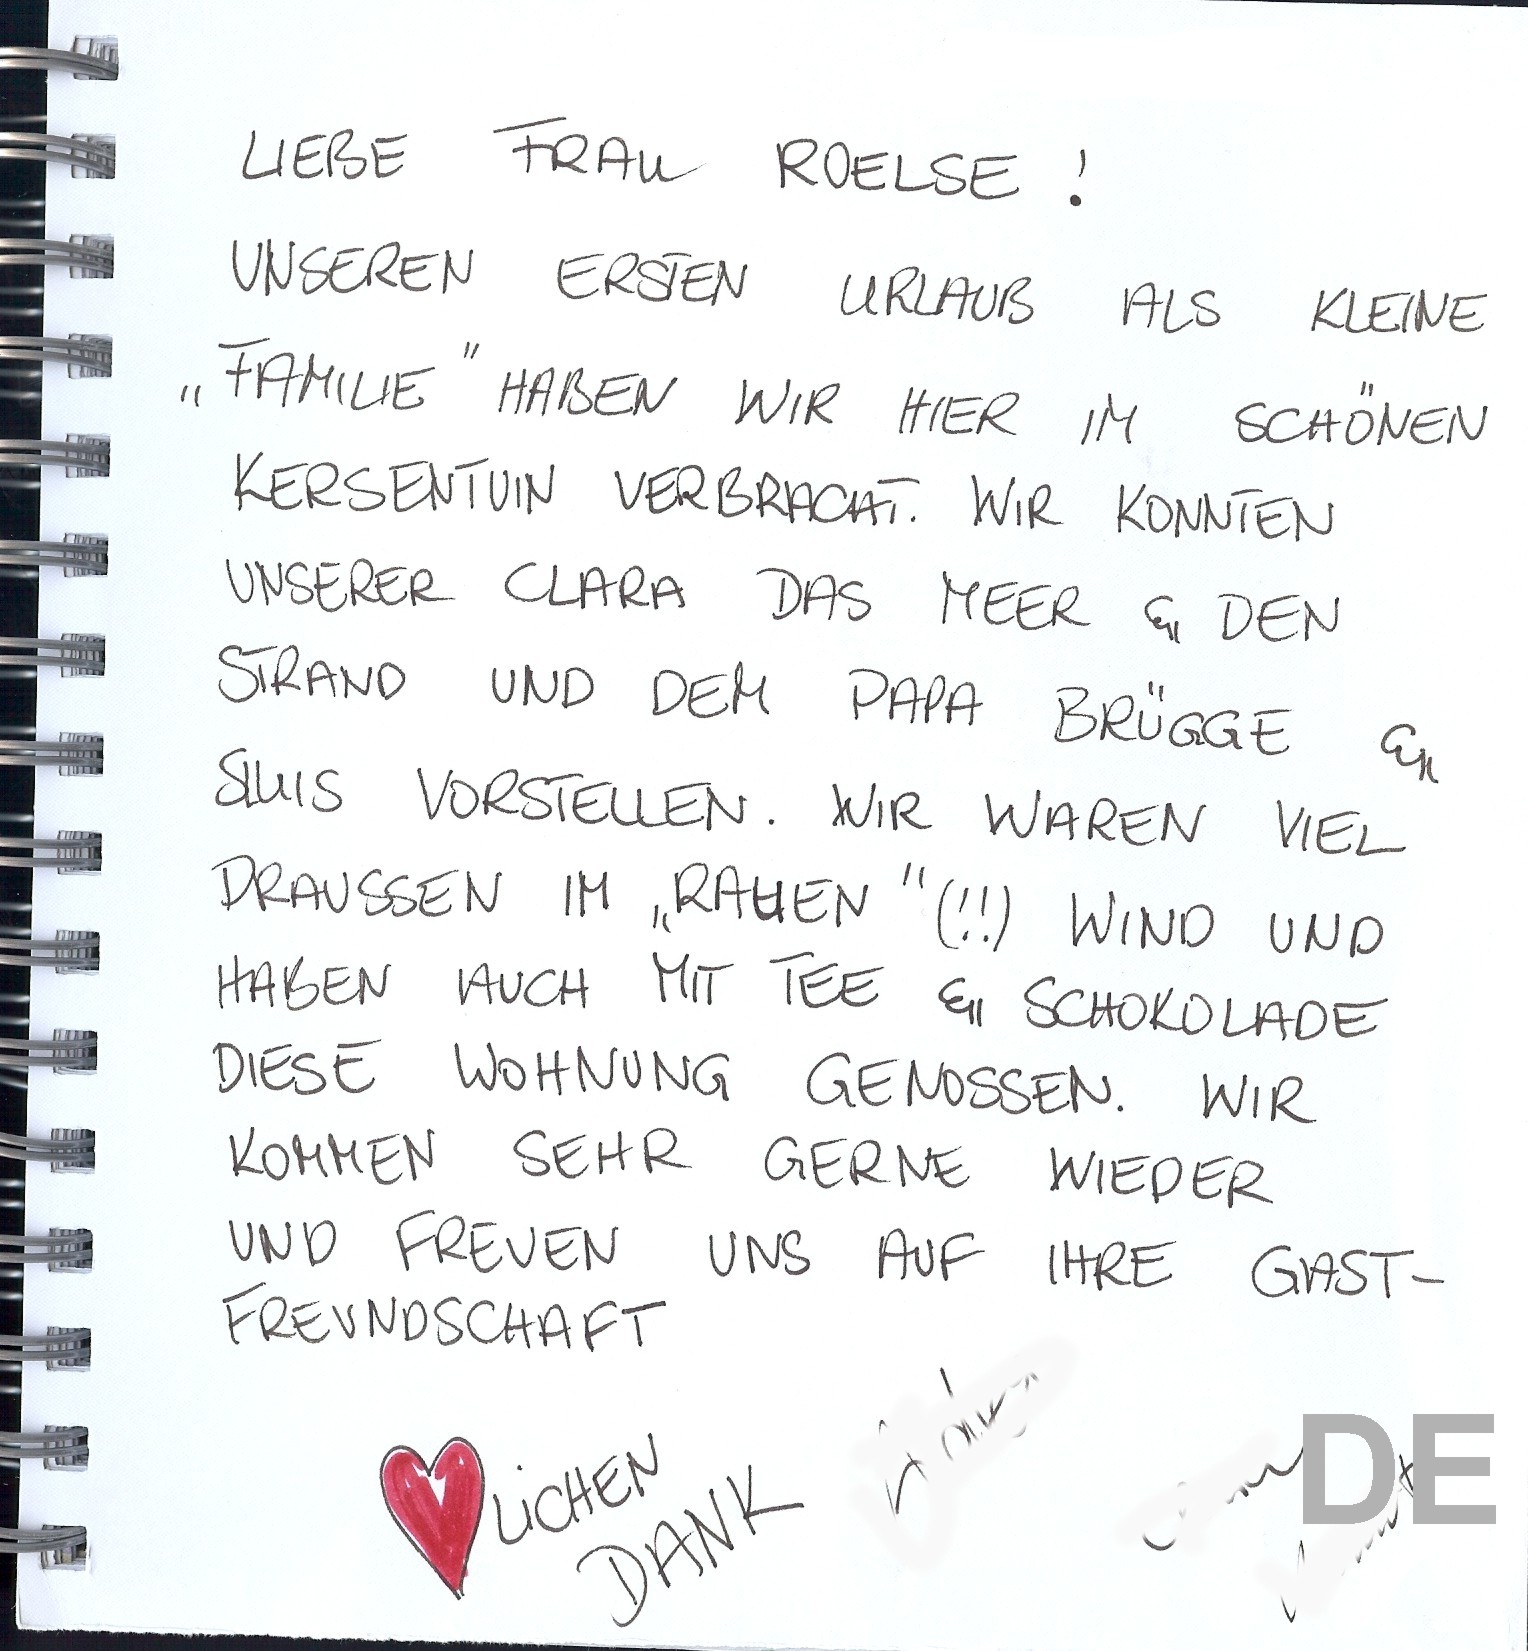 LIEBE FRAU ROELSE !
UNSEREN ERSTEN URLAUB ALS KLEINE
„FAMILIE" HABEN WIR HIER IM SCHÖNEN
KERSENTUIN VERBRACHT. WIR KONNTEN
UNSERER CLARA DAS MEER & DEN
STRAND UND DEM PAPA BRÜGGE &
SLUIS VORSTELLEN. WIR WAREN VIEL
DRAUSSEN IM „RAUEN" (!!) WIND UND
HABEN AUCH MIT TEE & SCHOKOLADE
DIESE WOHNUNG GENOSSEN. WIR
KOMMEN SEHR GERNE WIEDER
UND FREUEN UNS AUF IHRE GAST-
FREUNDSCHAFT
LICHEN
DANK
DE